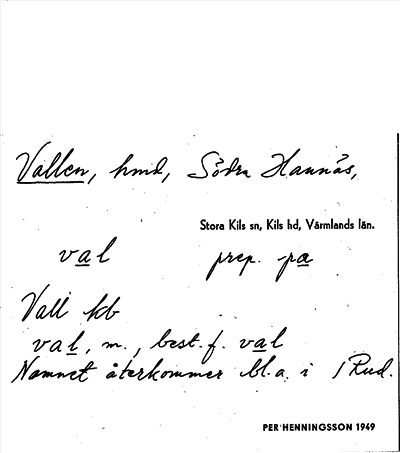 Vallen, hmd, Södra Hannäs,
Stora Kils sn, Kils hd, Värmlands län.
val prep. pa
Vall kb
val, m., best. f. val
Namnet återkommer bl.a. i 1 Rud.
PER HENNINGSSON 1949